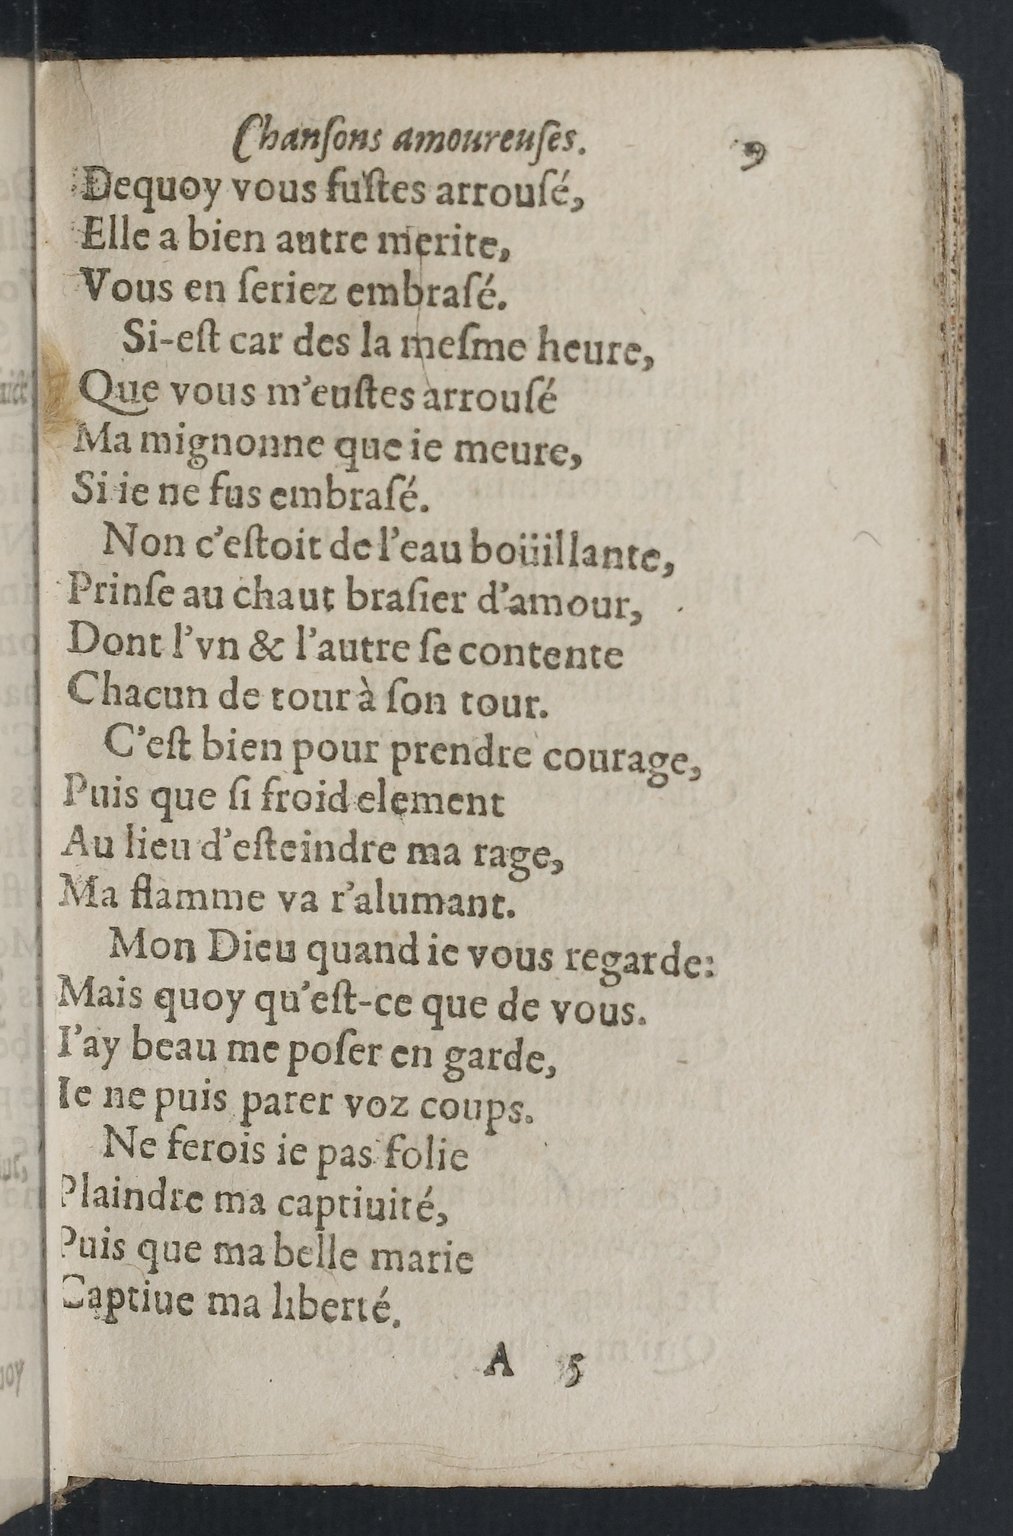 Chanſons amoureuſes. 9
Dequoy vous fuſtes arrouſé,
Elle a bien autre merite,
Vous en ſeriez embraſé.
Si-eſt car des la meſme heure,
Que vous m'euſtes arrouſé
Ma mignonne que ie meure,
Si ie ne fus embraſé.
Non c'eſtoit de l'eau boüillante,
Prinſe au chaut braſier d'amour,
Dont l'vn & l'autre ſe contente
Chacun de tour à ſon tour.
C'eſt bien pour prendre courage,
Puis que ſi froid element
Au lieu d'eſteindre ma rage,
Ma flamme va r'alumant.
Mon Dieu quand ie vous regarde:
Mais quoy qu'eſt-ce que de vous.
I'ay beau me poſer en garde,
Ie ne puis parer voz coups.
Ne ferois ie pas folie
Plaindre ma captiuité,
Puis que ma belle marie
Captiue ma liberté.
A 5